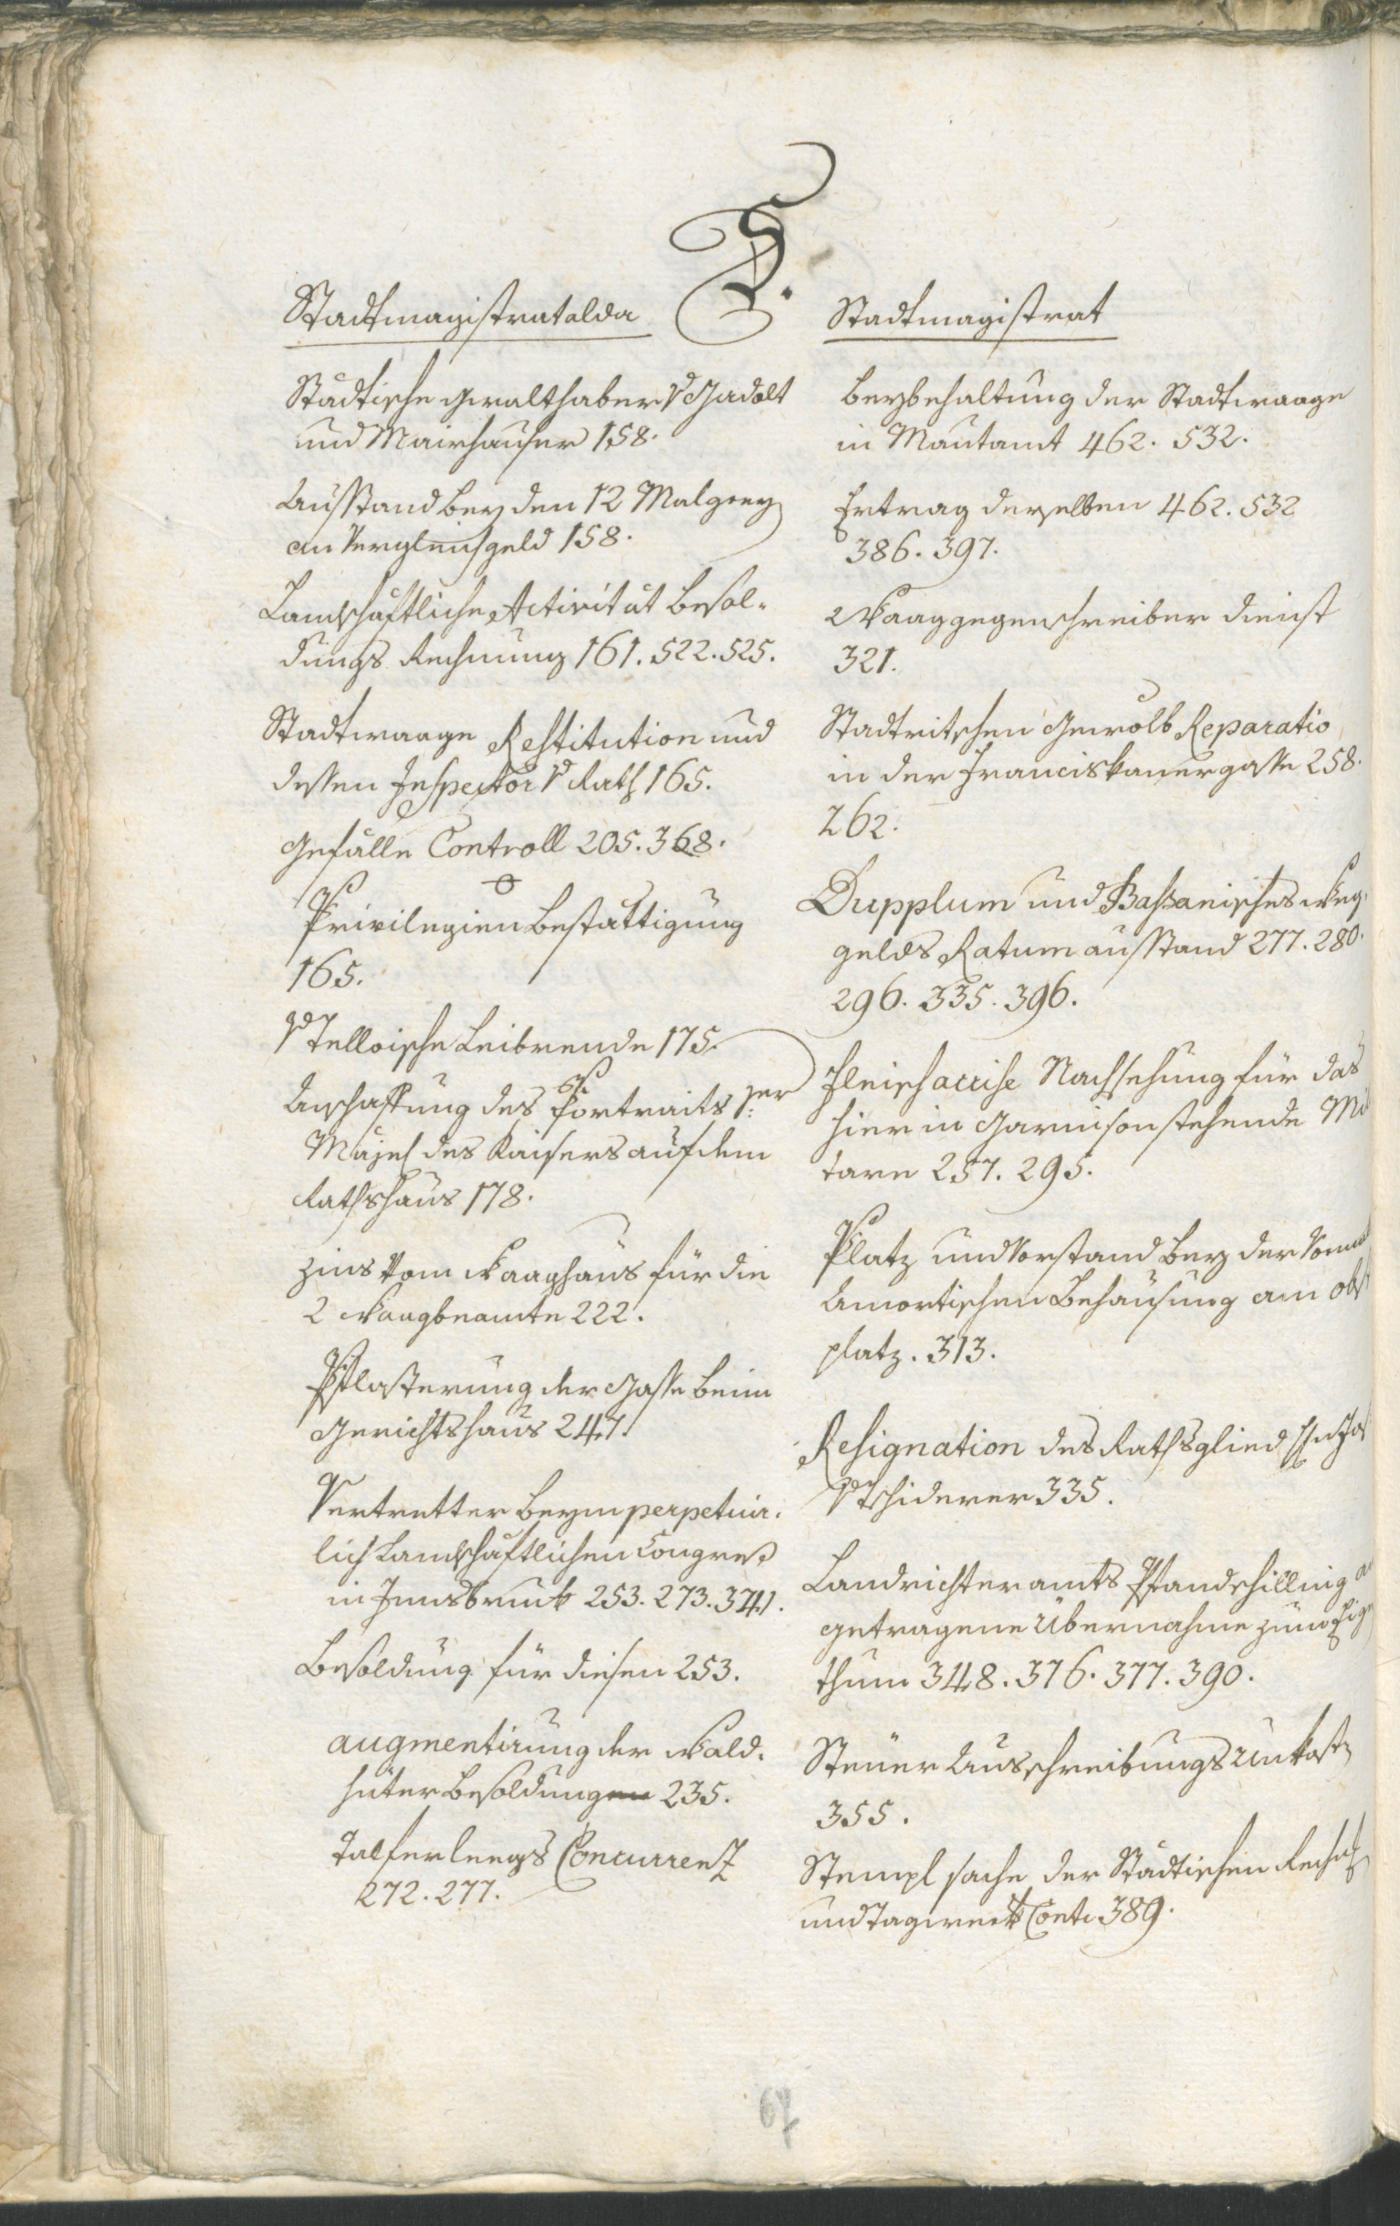 S.
Stadtmagistratalda
Städtische Gewalthaber v Gadolt
und Mairhauser 158.
Ausstand bey den 12 Malgrey
an Vergleichgeld 158.
Landschaftliche Activität Besol-
dungs Rechnung 161. 522. 525.
Stadtwaage Restitution und
dessen Inspector v Rath 165.
Gefälle Controll 205. 368.
Privilegien Bestättigung
165.
v Telloische Leibrende 175.
Anschaffung des Portraits Sr
Majest des Kaisers auf dem
Rathshaus 178.
Zins vom Waaghaus für die
2 Waagbeamte 222.
Pflasterung der Gasse beim
Gerichtshaus 247.
Vertretter beym perpetuir-
lich Landschaftlichen Congress
in Innsbruck 253. 273. 374.
Besoldung für diesen 253.
augmentirung der Wald-
hüter Besoldungen 235.
Talfer Concurrenz
272. 277.
Stadtmagistrat
Beybehaltung der Stadtwaage
in Mautamt 462. 532.
Ertrag derselben 462. 532
386. 397.
Waaggegenschreiber dienst
321.
Stadtritschen Gewölb Reparatio
in der Franciskanergasse 258.
262.
Dupplum und Bassanisches Weg-
gelds Ratum ausstand 277. 280.
296. 335. 396.
Fleischaccise Nachsehung für das
hier in Garnison stehende Mi
tare 257. 295.
Platz und Vorstand bey der
Amortischen Behausung am Obst
platz. 313.
Resignation des Rathsglied Hn Jos
v Tschiderer 335.
Landrichteramts Pfandschilling a
getragene Übernahme zum Eige
thum 348. 376. 377. 390.
Steuer Ausschreibungs Unkost
355.
Stempl sache der Städtischen Rech
und Tagwerk Conti 389.
67